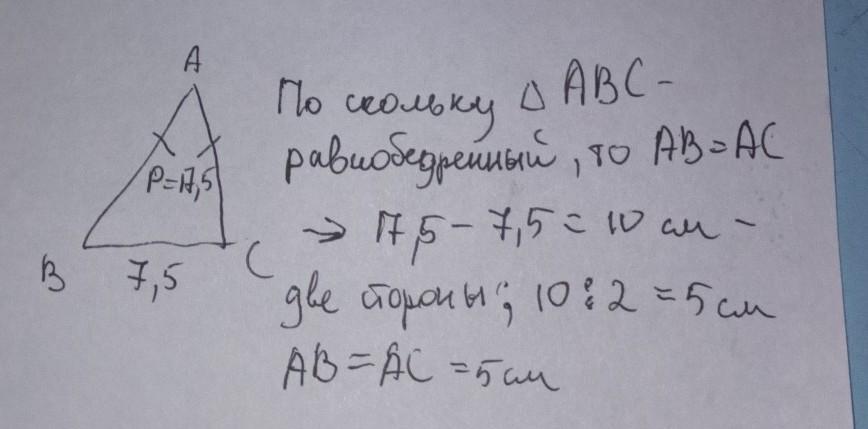 A
P=17,5
B
7,5
C
По скольку △ ABC -
равнобедренный, то AB=AC
→ 17,5 - 7,5 = 10 см -
две стороны; 10:2 = 5 см
AB = AC = 5 см